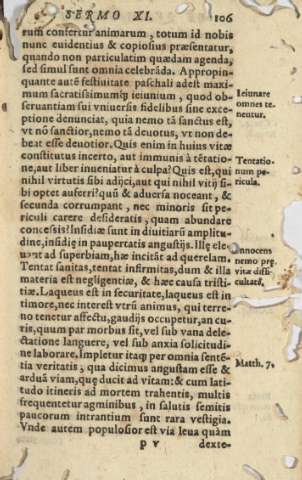 SERMO XI. 106
rum confertur animarum, totum id nobis
nunc euidentius & copiosius præsentatur,
quando non particulatim quædam agenda,
sed simul sunt omnia celebrãda. Appropin-
quante autẽ festiuitate paschali adest maxi-
mum sacratissimumq; ieiunium, quod ob-
seruantiam sui vniuersis fidelibus sine exce-
ptione denunciat, quia nemo tã sanctus est,
vt nõ sanctior, nemo tã deuotus, vt non de-
beat esse deuotior. Quis enim in huius vitæ
constitutus incerto, aut immunis à tẽtatio-
ne, aut liber inueniatur à culpa? Quis est, qui
nihil virtutis sibi adijci, aut qui nihil vitij si-
bi optet auferri? quũ & aduersa noceant, &
secunda corrumpant, nec minoris sit pe-
riculi carere desideratis, quam abundare
concessis? Insidiæ sunt in diuitiarũ amplitu-
dine, insidiæ in paupertatis angustijs. Illę ele-
uant ad superbiam, hæ incitãt ad querelam.
Tentat sanitas, tentat infirmitas, dum & illa
materia est negligentiæ, & hæc causa tristi-
tiæ. Laqueus est in securitate, laqueus est in
timore, nec interest vtrũ animus, qui terre-
no tenetur affectu, gaudijs occupetur, an cu-
ris, quum par morbus sit, vel sub vana dele-
ctatione languere, vel sub anxia solicitudi-
ne laborare. Impletur itaq; per omnia sentẽ-
tia veritatis, qua dicimus angustam esse &
arduã viam, quę ducit ad vitam: & cum lati-
tudo itineris ad mortem trahentis, multis
frequentetur agminibus, in salutis semitis
paucorum intrantium sunt rara vestigia.
Vnde autem populosior est via leua quàm
p v dexte-
Ieiunare
omnes te-
nentur.
Tentatio-
num pe-
ricula.
Innocens
nemo prę
vitæ diffi-
cultate,
Matth. 7.